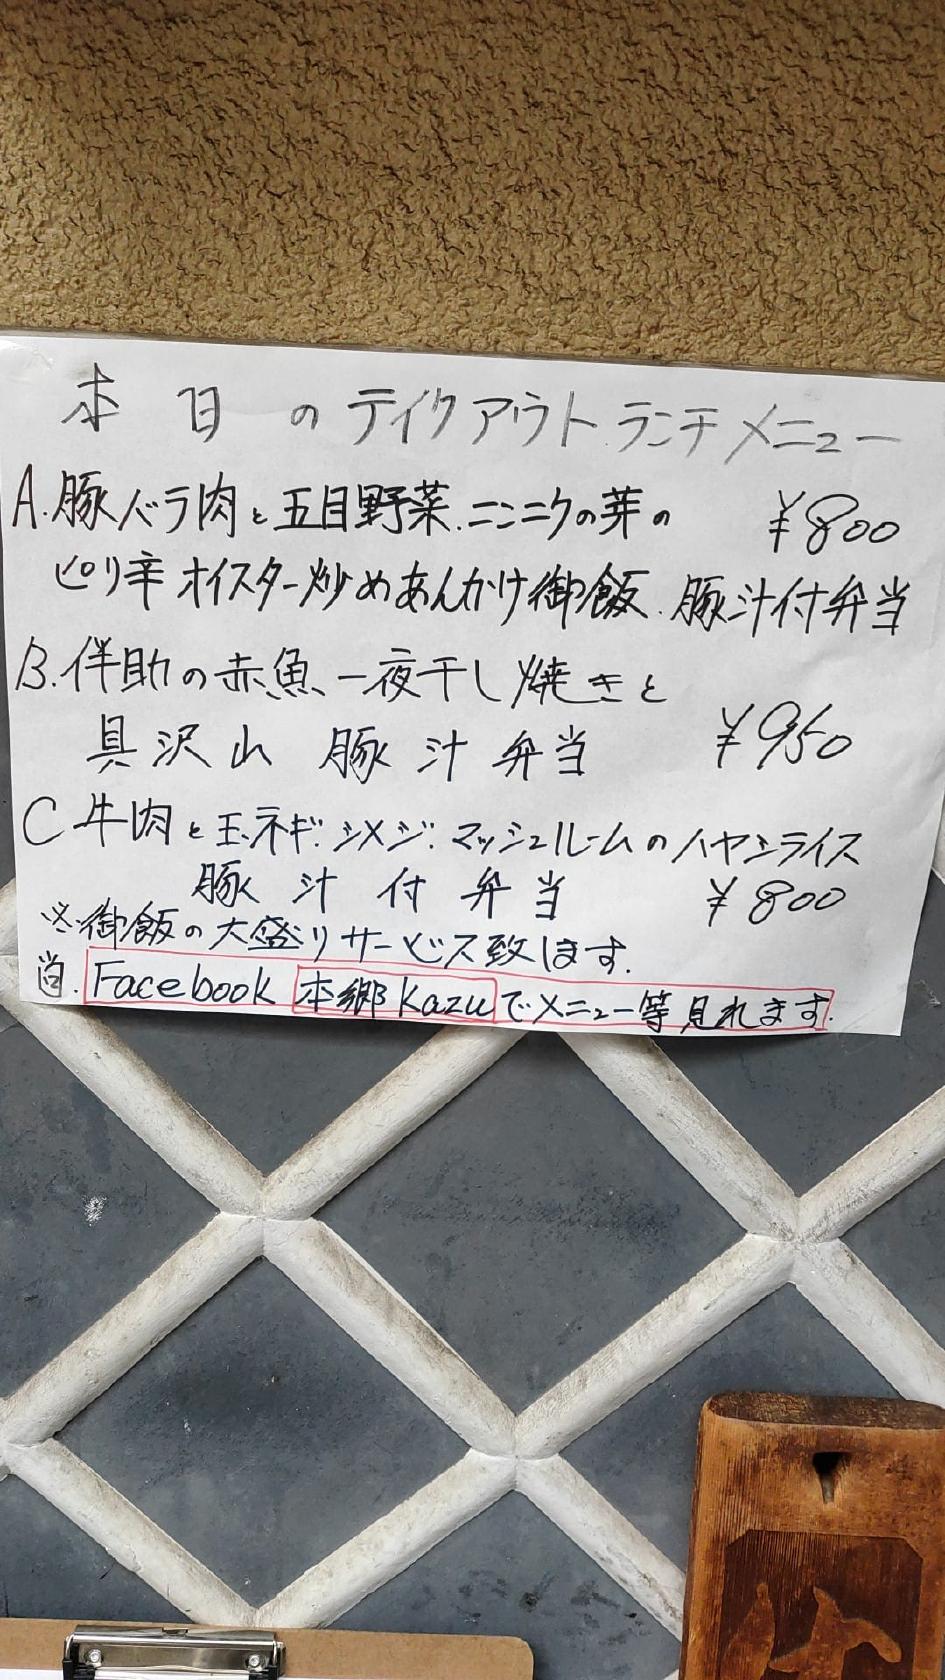 本日のテイクアウトランチメニュー
A.豚バラ肉と五目野菜.ニンニクの芽の ¥800
ピリ辛オイスター炒めあんかけ御飯.豚汁付弁当
B.伴助の赤魚一夜干し焼きと
具沢山豚汁弁当 ¥950
C.牛肉と玉ネギ.シメジ.マッシュルームのハヤシライス
豚汁付弁当 ¥800
※御飯の大盛りサービス致します.
尚.Facebook 本郷Kazuでメニュー等見れます.